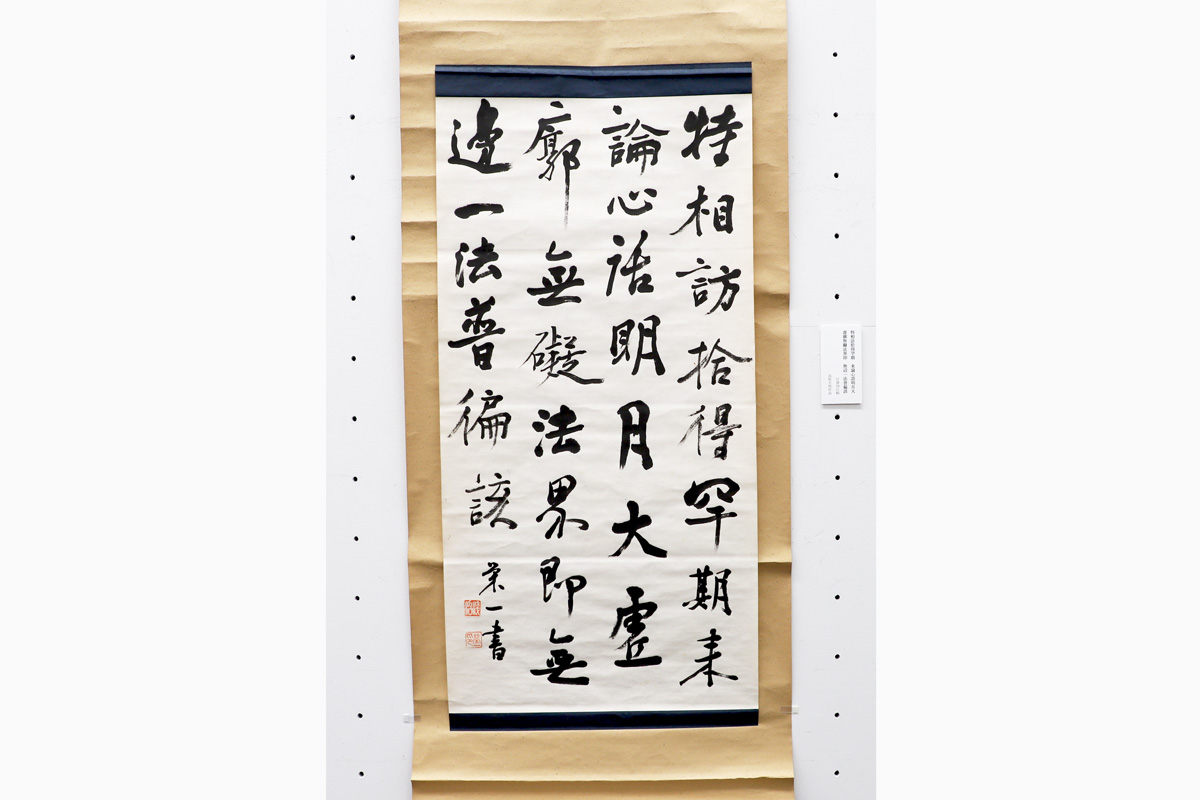 特相訪拾得罕期来
論心話明月大虚
廓無礙法界即無
邊一法普徧該
栄一書